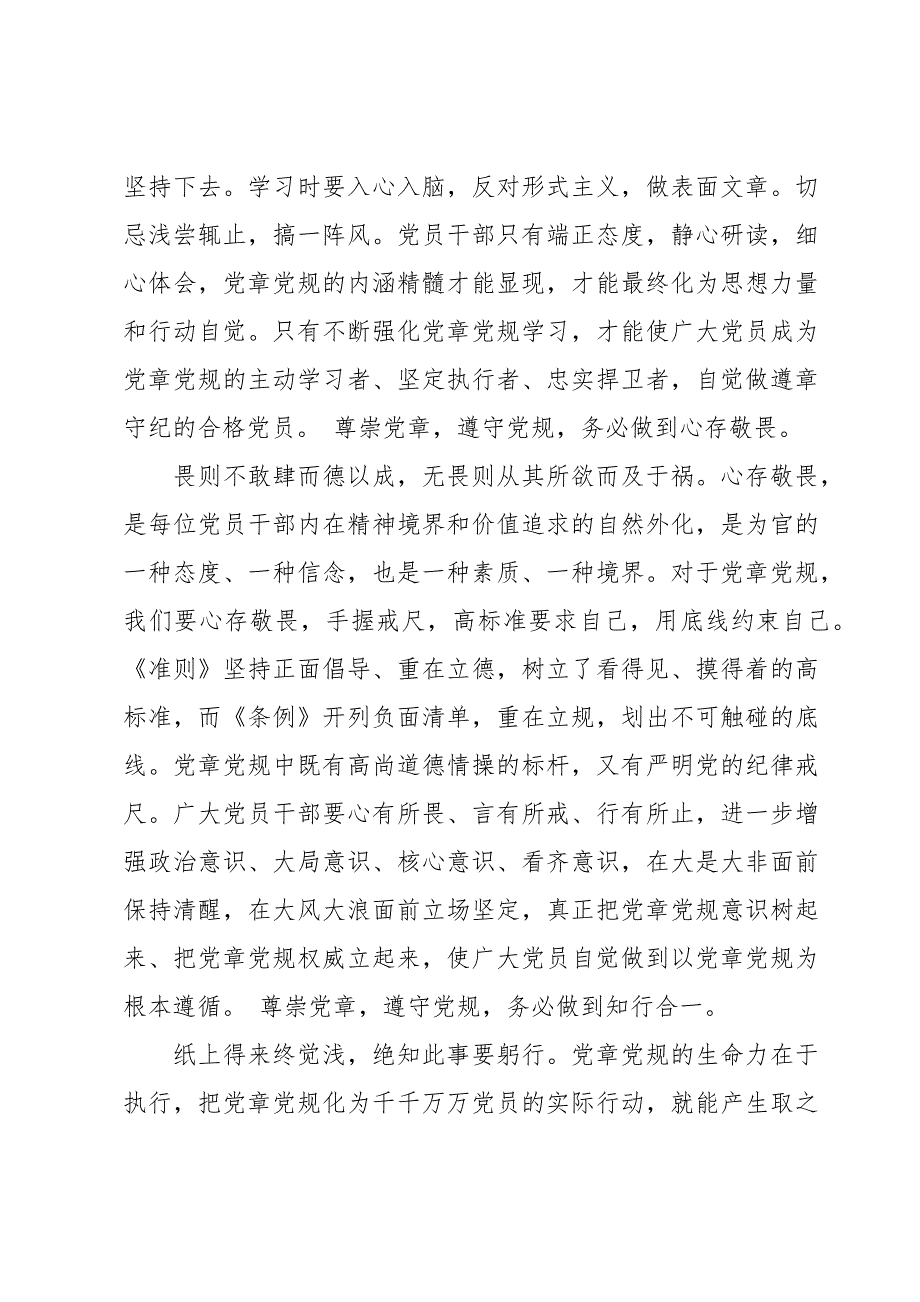 坚持下去。学习时要入心入脑，反对形式主义，做表面文章。切
忌浅尝辄止，搞一阵风。党员干部只有端正态度，静心研读，细
心体会，党章党规的内涵精髓才能显现，才能最终化为思想力量
和行动自觉。只有不断强化党章党规学习，才能使广大党员成为
党章党规的主动学习者、坚定执行者、忠实捍卫者，自觉做遵章
守纪的合格党员。 尊崇党章，遵守党规，务必做到心存敬畏。
畏则不敢肆而德以成，无畏则从其所欲而及于祸。心存敬畏，
是每位党员干部内在精神境界和价值追求的自然外化，是为官的
一种态度、一种信念，也是一种素质、一种境界。对于党章党规，
我们要心存敬畏，手握戒尺，高标准要求自己，用底线约束自己。
《准则》坚持正面倡导、重在立德，树立了看得见、摸得着的高
标准，而《条例》开列负面清单，重在立规，划出不可触碰的底
线。党章党规中既有高尚道德情操的标杆，又有严明党的纪律戒
尺。广大党员干部要心有所畏、言有所戒、行有所止，进一步增
强政治意识、大局意识、核心意识、看齐意识，在大是大非面前
保持清醒，在大风大浪面前立场坚定，真正把党章党规意识树起
来、把党章党规权威立起来，使广大党员自觉做到以党章党规为
根本遵循。 尊崇党章，遵守党规，务必做到知行合一。
纸上得来终觉浅，绝知此事要躬行。党章党规的生命力在于
执行，把党章党规化为千千万万党员的实际行动，就能产生取之